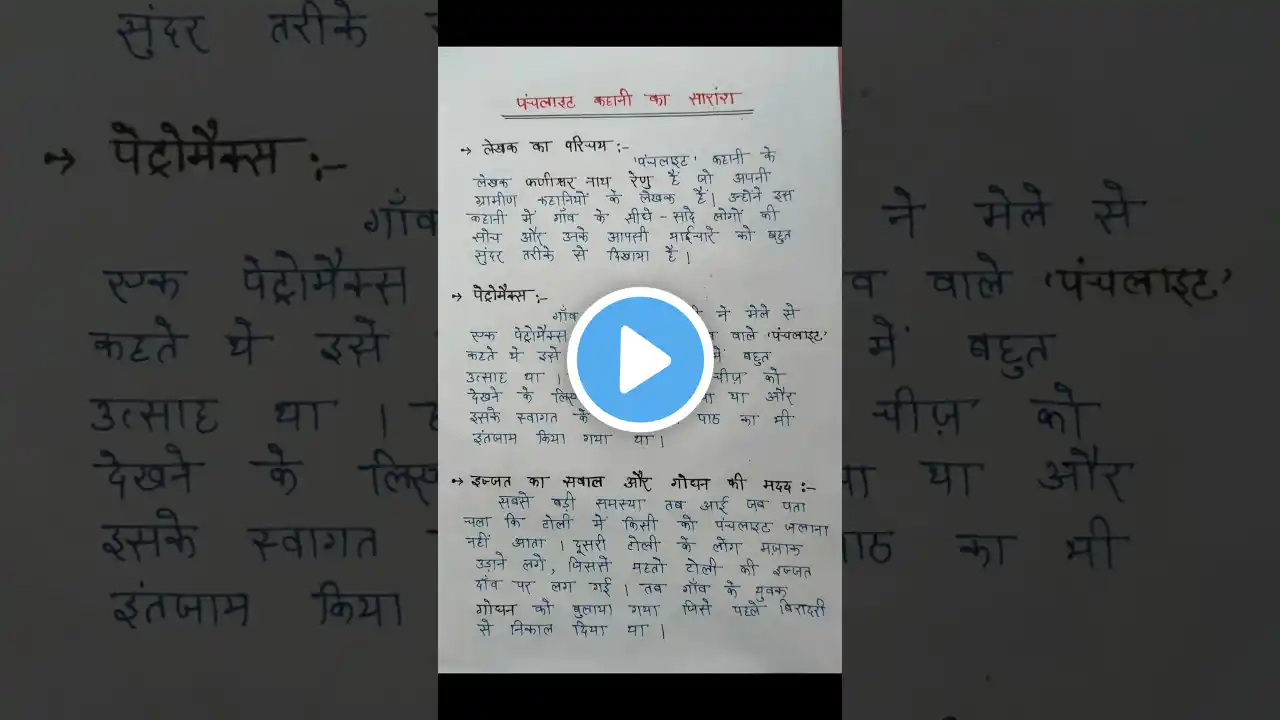 पंचलाइट कहानी का सारांश
→ लेखक का परिचय :-
'पंचलाइट' कहानी के
लेखक फणीश्वर नाथ रेणु हैं जो अपनी
ग्रामीण कहानियों के लेखक हैं। उन्होंने इस
कहानी में गाँव के सीधे - सादे लोगों की
सोच और उनके आपसी भाईचारे को बहुत
सुंदर तरीके से दिखाया है।
→ पेट्रोमैक्स :-
गाँव ने मेले से
एक पेट्रोमैक्स वाले 'पंचलाइट'
कहते थे इसे में बहुत
उत्साह था । चीज़ को
देखने के था और
इसके स्वागत के पाठ का भी
इंतजाम किया गया था।
→ इज्जत का सवाल और गोधन की मदद :-
सबसे बड़ी समस्या तब आई जब पता
चला कि टोली में किसी को पंचलाइट जलाना
नहीं आता । दूसरी टोली के लोग मज़ाक
उड़ाने लगे, जिससे महतो टोली की इज्जत
दाँव पर लग गई । तब गाँव के युवक
गोधन को बुलाया गया जिसे पहले बिरादरी
से निकाल दिया था ।